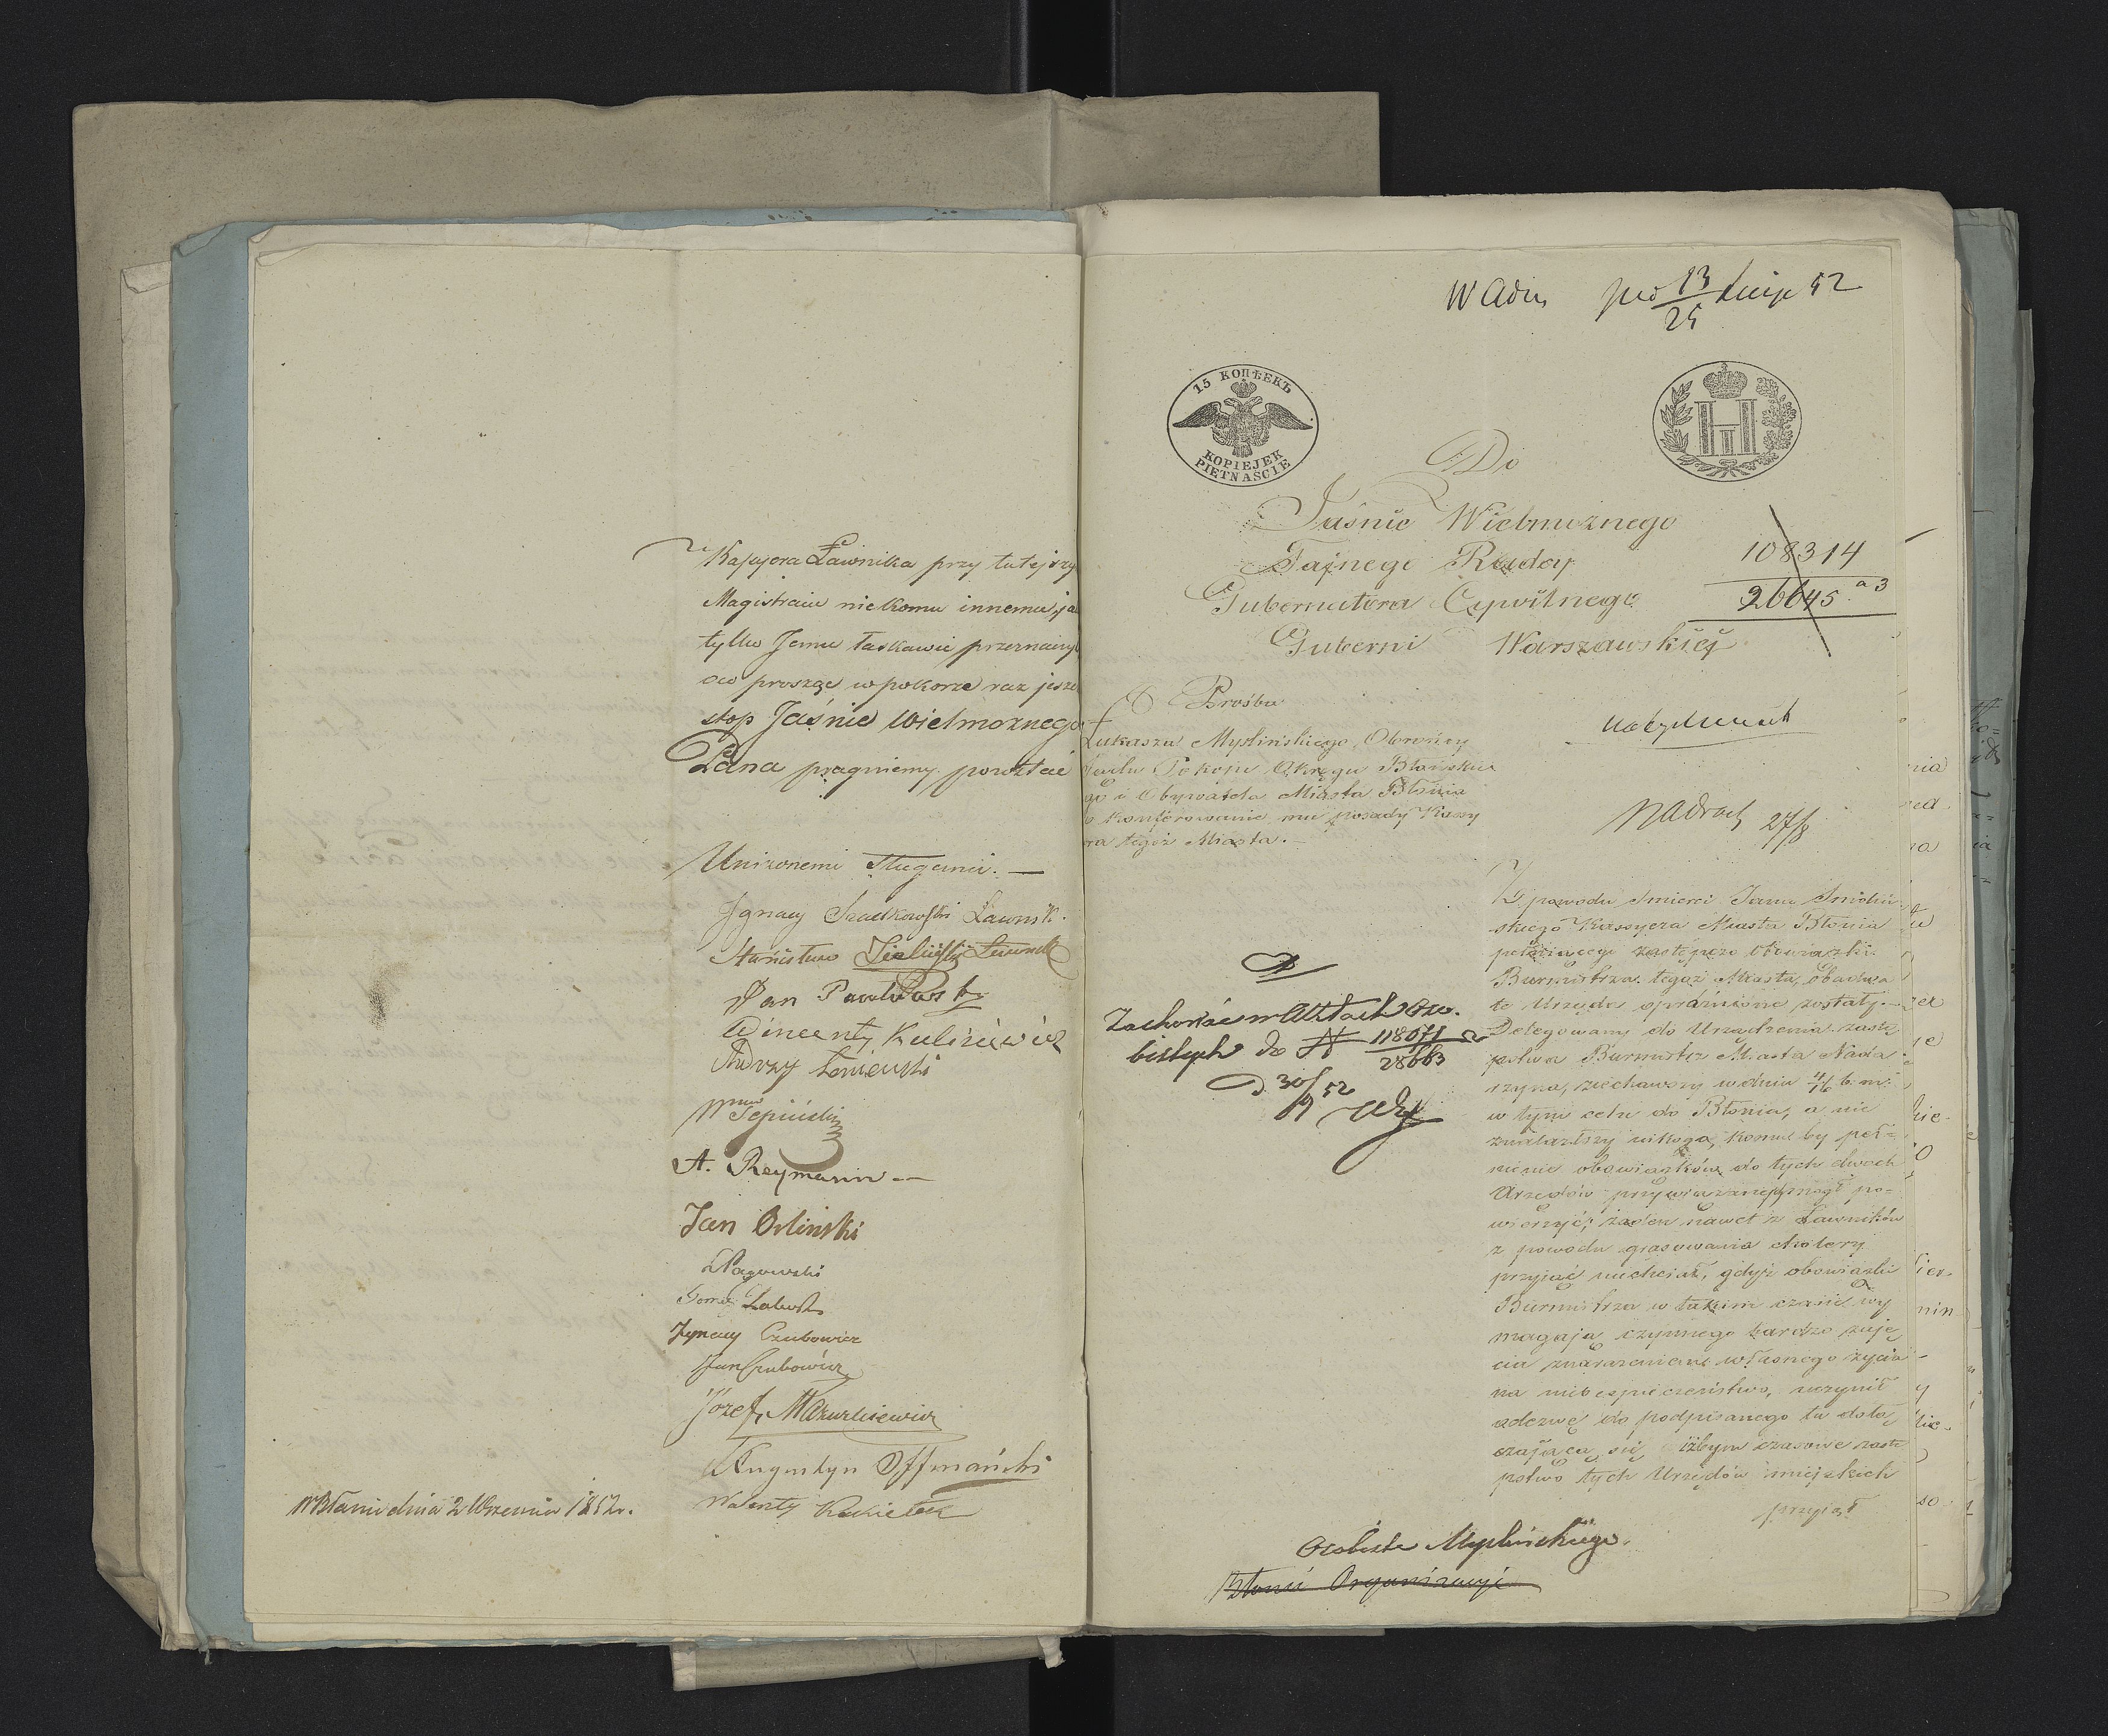 Kassyera Ławnika przy tutejszy
Magistracie nie komu innemu, ja
tylko Jemu łaskawie przeznaczyć
oco proszęc w pokorze raz jeszcze
stop Jaśnie Wielmożnego
Pana pragniemy powstać
Uniżonemi Sługami. —
Ignacy Szadkowski Ławnik.
Stanisław Zieliński Ławnik
Jan Pawłowski
Wincenty Kulisiewicz
Andrzy Łoniewski
Sepiński
A. Reymann —
Jan Orliński
Łagowski
Zalewski
Ignacy Czubowicz
Jan Czubowicz
Józef Mazurkiewicz
Augustyn Offmański
Walenty Kukiełek
W Błoniu dnia 2 Września 1852 r.
13
25
52
15 КОПѢЕКЪ
KOPIEJEK
PIĘTNAŚCIE
Do
Jaśnie Wielmożnego
Tajnego Radcy
Gubernatora Cywilnego
Guberni Warszawskiéj
108314
26645 a 3
Prośba
Łukasza Myślińskiego, Obrońcy
Sądu Pokoju Okręgu Błońskie
go i Obywatela Miasta Błonia
o konferowanie mu posady Kassy
ra tegoż Miasta. —
27/8
Zachować w Aktach Oso.
bistych do N 118071
28663
D. 30/9 52
Z powodu śmierci Jana Smoliń
skiego Kassyera Miasta Błonia
pełniącego zastępczo obowiązki
Burmistrza tegoż Miasta, obadwa
te Urzęda opróżnione zostały. —
Delegowany do Urządzenia zastę
pstwa Burmistrz Miasta Nada
rzyna, zjechawszy w dniu 4/16 b. m.
w tym celu do Błonia, a nie
znalazłszy nikogo, komu by peł=
nienie obowiązków do tych dwóch
Urzędów przywiązanych mógł po=
wierzyć; żaden nawet z Ławników
z powodu grasowania cholery
przyjąć niechciał, gdyż obowiązki
Burmistrza w takim czasie wy
magają czynnego bardzo zaję
cia z narażeniem własnego życia
na niebezpieczeństwo, uczynił
odezwę do podpisanego tu dołą
czającą się, iżbym czasowe zastę
pstwo tych Urzędów miejskich
przyjął
Osobiste Myślińskiego.
Błonie Organizacyi